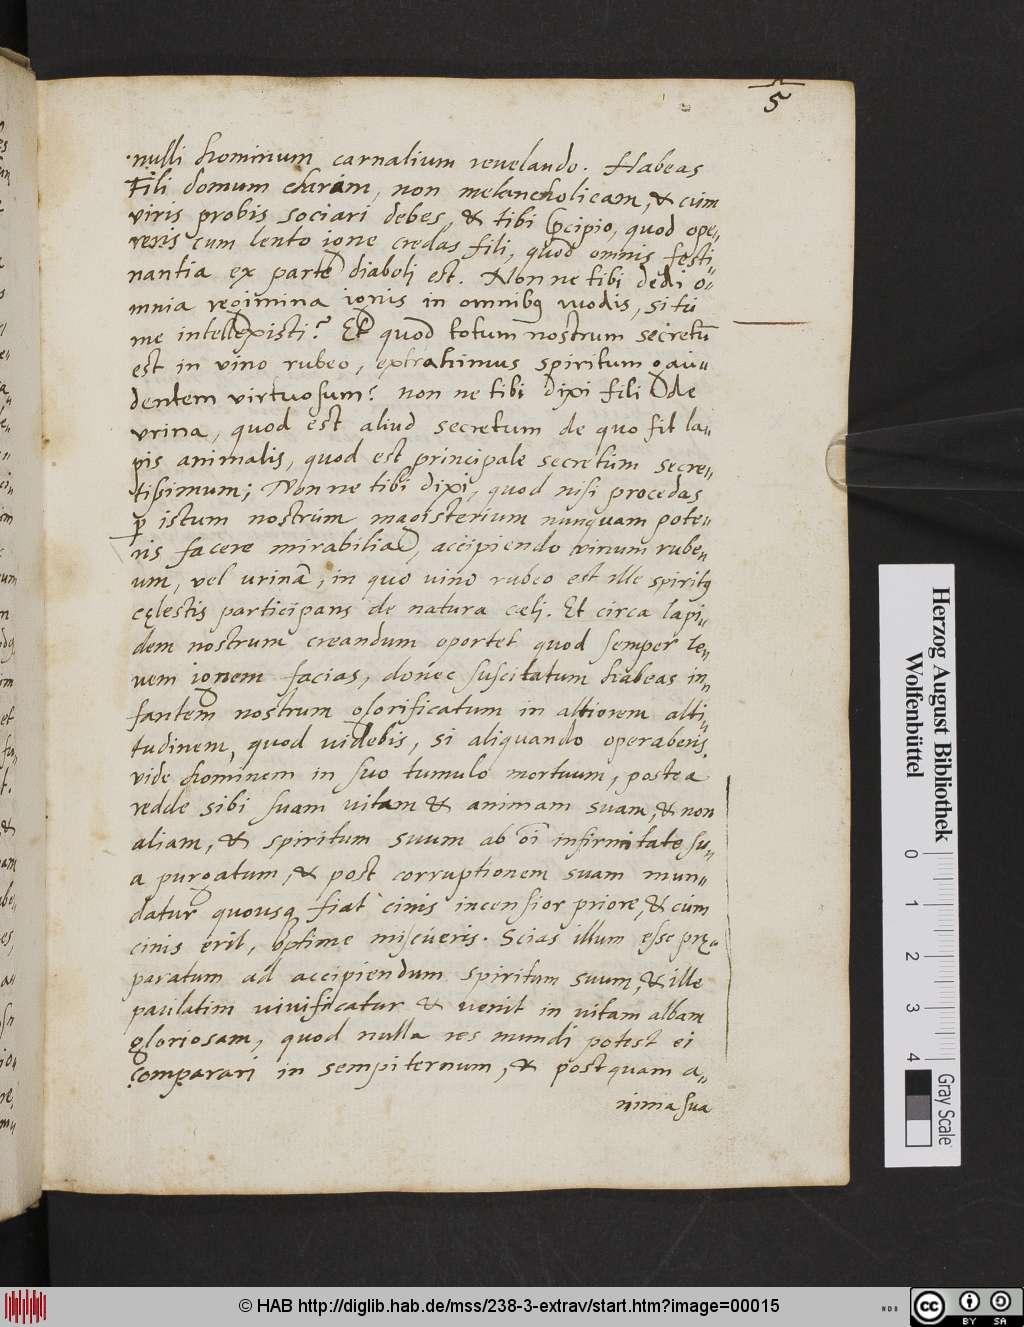 5
nulli hominum carnalium revelando. Habeas
Fili domum claram, non melancholicam, & cum
viris probis sociari debes, & tibi pcipio, quod ope„
reris cum lento igne credas fili, quod omnis festi„
nantia ex parte diaboli est. Non ne tibi dedi o„
mnia regimina ignis in omnibq modis, si tu
me intellexisti? Et quod totum nostrum secretū
est in vino rubeo, extrahimus spiritum gau„
dentem virtuosum? non ne tibi dixi fili de
vrina, quod est aliud secretum de quo fit la„
pis animalis, quod est principale secretum secre„
tissimum; Non ne tibi dixi, quod nisi procedas
p istum nostrum magisterium nunquam pote„
ris facere mirabilia, accipiendo vinum rube„
um, vel urinā, in quo vino rubeo est ille spiritq
cęlestis participans de natura cæli. Et circa lapi„
dem nostrum creandum oportet quod semper le„
vem ignem facias, donec suscitatum habeas in„
fantem nostrum glorificatum in altiorem alti„
tudinem, quod videbis, si aliquando operaberis.
vide hominem in suo tumulo mortuum, postea
redde sibi suam vitam & animam suam, & non
aliam, & spiritum suum ab oī infirmitate su„
a purgatum, & post corruptionem suam mun„
datur quousq fiat cinis incensior priore, & cum
cinis erit, optime miscueris. Scias illum esse prę„
paratum ad accipiendum spiritum suum, & ille
paulatim vivificatur & venit in vitam albam
gloriosam, quod nulla res mundi potest ei
comparari in sempiternum, & postquam a„
nima sua
Herzog August Bibliothek
Wolfenbüttel
0 1 2 3 4
Gray Scale
© HAB http://diglib.hab.de/mss/238-3-extrav/start.htm?image=00015
NDB
cc BY SA